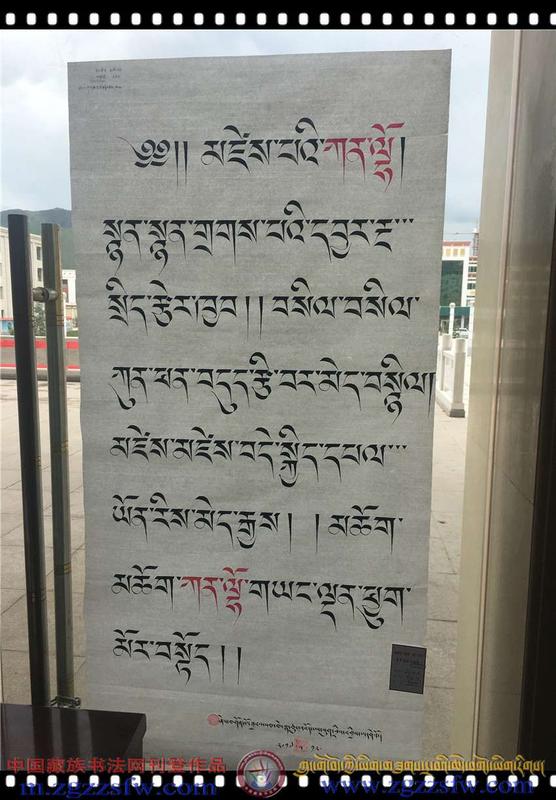 ༄༅།། མཛེས་པའི་ཀན་ལྷོ།
སྙན་སྙན་གྲགས་པའི་དབྱར་རྔ་་་
སྲིད་རྩེར་ཁྱབ།།བསིལ་བསིལ་
ཀུན་ཕན་བདུད་རྩི་བར་མེད་བསྙིལ།
མཛེས་མཛེས་བདེ་སྐྱིད་དཔལ་་་
ཡོན་རིས་མེད་རྒྱས། །མཆོག་
མཆོག་ཀན་ལྷོ་གཡང་ལྡན་ཕྱུག་
མོར་བསྟོད།།
中国藏族书法网刊登作品
m.zgzzsfw.com
www.zgzzsfw.com